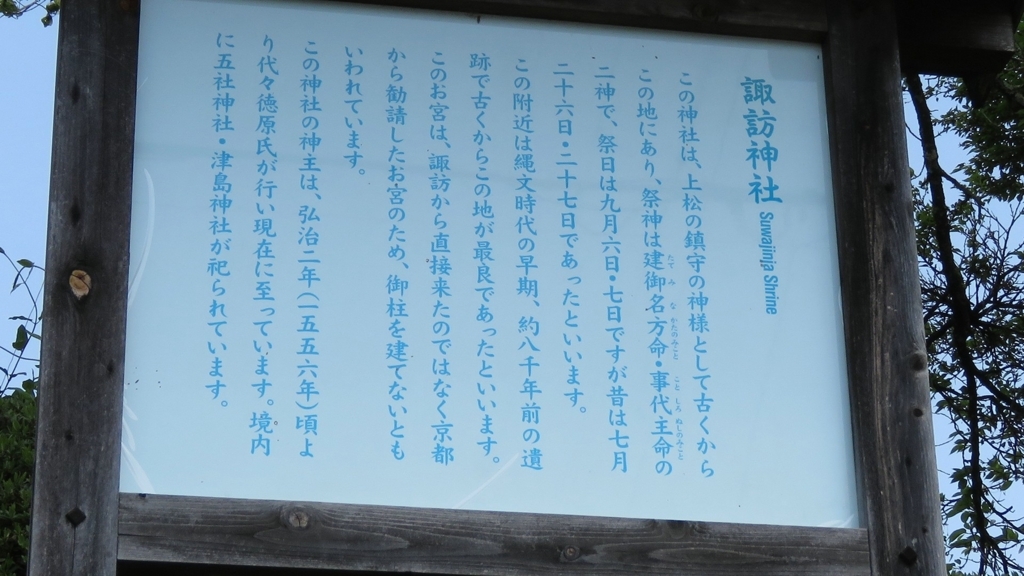 諏訪神社 Suwajinja Shrine
この神社は、上松の鎮守の神様として古くから
この地にあり、祭神は建御名方命・事代主命の
二神で、祭日は九月六日・七日ですが昔は七月
二十六日・二十七日であったといいます。
この附近は縄文時代の早期、約八千年前の遺
跡で古くからこの地が最良であったといいます。
このお宮は、諏訪から直接来たのではなく京都
から勧請したお宮のため、御柱を建てないとも
いわれています。
この神社の神主は、弘治二年(一五五六年)頃よ
り代々徳原氏が行い現在に至っています。境内
に五社神社・津島神社が祀られています。